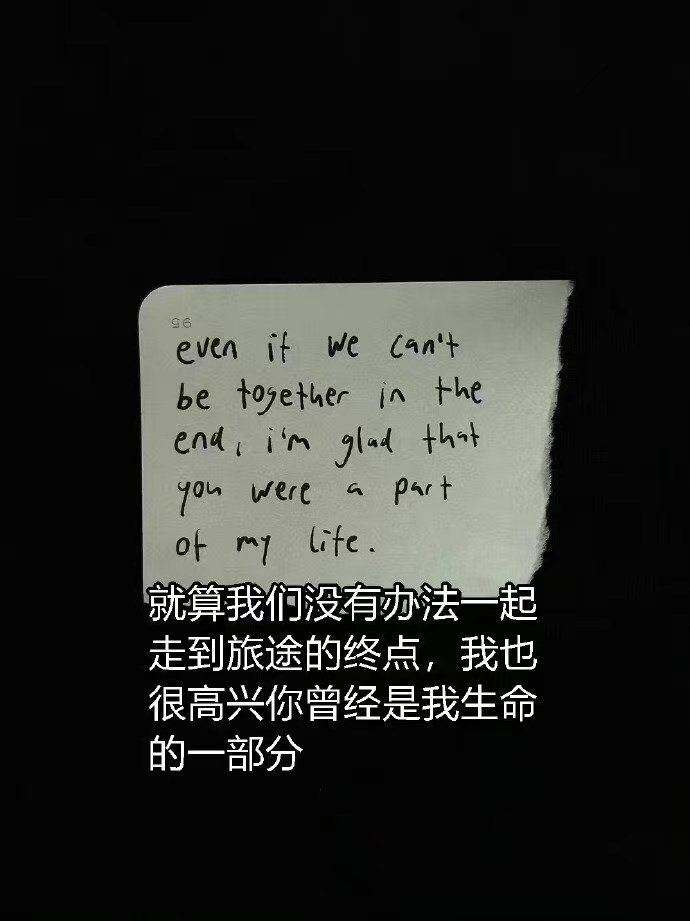 95
even if we can't
be together in the
end, i'm glad that
you were a part
of my life.
就算我们没有办法一起
走到旅途的终点，我也
很高兴你曾经是我生命
的一部分